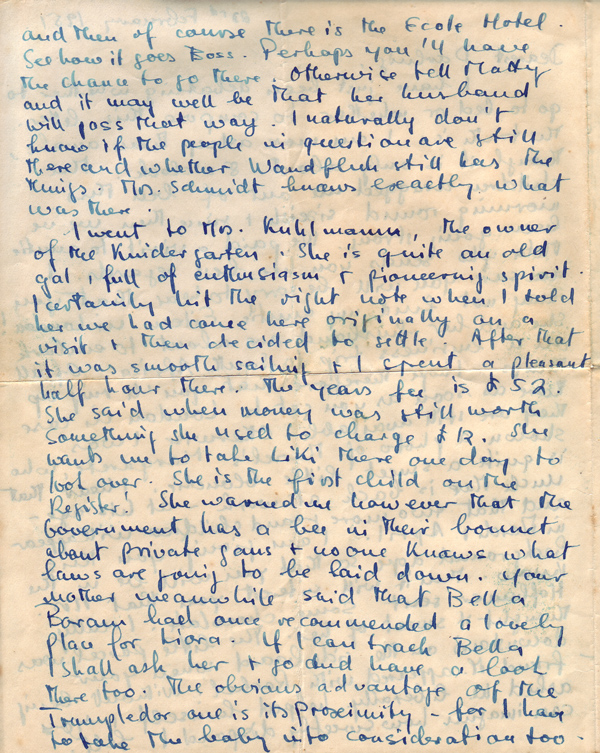 and then of course there is the Ecole Hotel.
See how it goes Boss. Perhaps you'll have
the chance to go there. Otherwise tell Matty
and it may well be that her husband
will pass that way. I naturally don't
know if the people in question are still
there and whether Wandfluh still has the
things. Mrs. Schmidt knows exactly what
was there.
I went to Mrs. Kuhlmann, the owner
of the Knidergarten. She is quite an old
gal, full of enthusiasm + pioneering spirit.
I certainly hit the right note when I told
her we had come here originally on a
visit + then decided to settle. After that
it was smooth sailing + I spent a pleasant
half hour there. The years fee is £52.
She said when money was still worth
something she used to charge £12. She
wants me to take Kiki there one day to
look over. She is the first child on the
Register! She warned me however that the
Government has a bee in their bonnet
about private gans + no one knows what
laws are going to be laid down. Your
mother meanwhile said that Bella
Baram had once recommended a lovely
place for Liora. If I can track Bella
I shall ask her + go and have a look
there too. The obvious advantage of the
Trumpledor one is its proximity - for I have
to take the baby into consideration too.